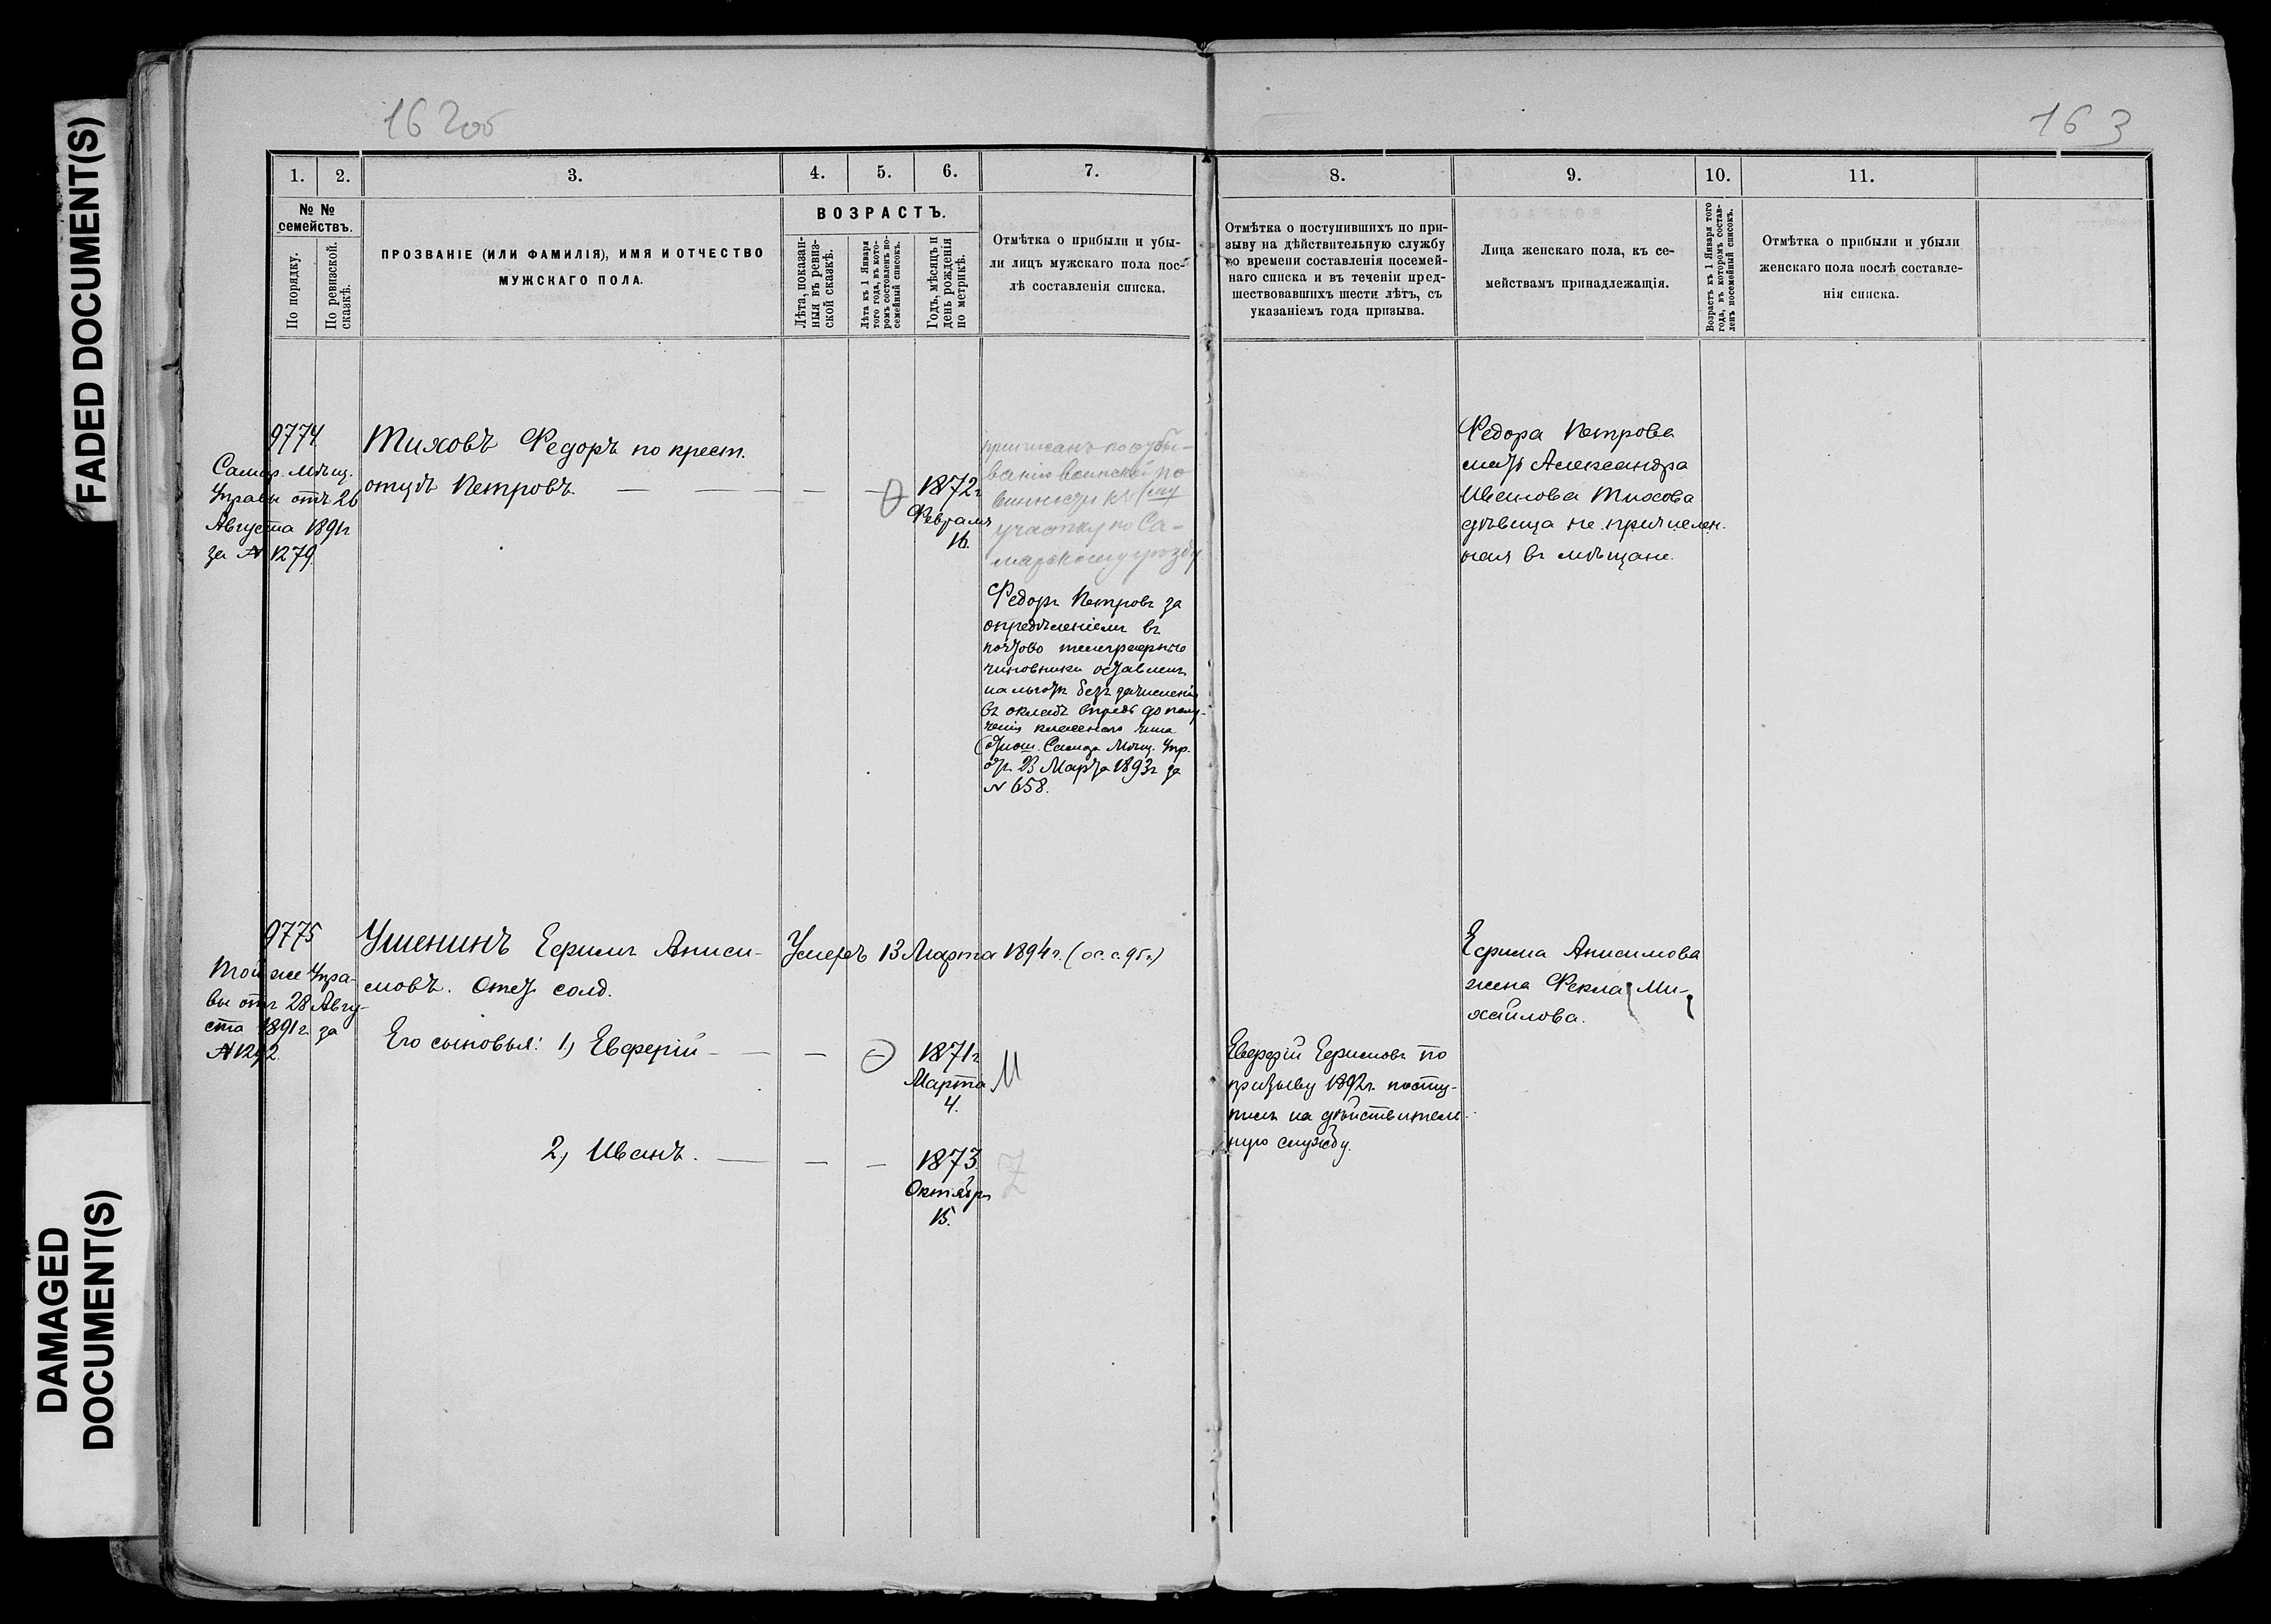 FADED DOCUMENT(S)
DAMAGED
DOCUMENT(S)
162об
163
1.
2.
3.
4.
5.
6.
7.
8.
9.
10.
11.
№ №
семействъ.
По порядку.
По ревизской
сказкѣ.
ПРОЗВАНІЕ (ИЛИ ФАМИЛІЯ), ИМЯ И ОТЧЕСТВО
МУЖСКАГО ПОЛА.
ВОЗРАСТЪ.
Лѣта, показан-
ныя въ ревиз-
ской сказкѣ.
Лѣта къ 1 Января
того года, въ кото-
ромъ составленъ по-
семейный списокъ.
Годъ, мѣсяцъ и
день рожденія
по метрикѣ.
Отмѣтка о прибыли и убы-
ли лицъ мужскаго пола пос-
лѣ составленія списка.
Отмѣтка о поступившихъ по при-
зыву на дѣйствительную службу
во времени составленія посемей-
наго списка и въ теченіи пред-
шествовавшихъ шести лѣтъ, съ
указаніемъ года призыва.
Лица женскаго пола, къ се-
мействамъ принадлежащія.
Возрастъ къ 1 Января того
года, въ которомъ состав-
ленъ посемейный списокъ.
Отмѣтка о прибыли и убыли
женскаго пола послѣ составле-
нія списка.
9774
Самар. Мѣщ.
Управы отъ 26
Августа 1891г
за № 1279.
Тиховъ Федоръ по крест.
отцѣ Петровъ.
1872г
Февраля
16.
приписанъ по отбы-
ванію воинской по
винности къ
участку по Са-
марскому уѣзду
Федоръ Петровъ за
опредѣленіемъ въ
почтово телеграфные
чиновники оставленъ
на льготѣ безъ зачисленія
въ окладъ впредь до полу-
ченія класснаго чина
(отнош. Самар. Мѣщ. Упр.
отъ 23 Марта 1893г за
№ 658.
Федора Петрова
мать Александра
Иванова Тихова
дѣвица не причислен-
ная въ мѣщане.
9775
Той же Упра-
вы отъ 28 Авгу-
ста 1891г. за
№ 1292.
Ушенинъ Ефимъ Аниси-
мовъ. Отст. солд.
Умеръ 13 Марта 1894г. (ос. с. 95г.)
Его сыновья: 1, Евферій
1871г
Марта
4.
М
2, Иванъ.
1873
Октября
15.
Евферій Ефимовъ по
призыву 1892г. посту-
пилъ на дѣйствитель-
ную службу.
Ефима Анисимова
жена Фекла Ми-
хайлова.